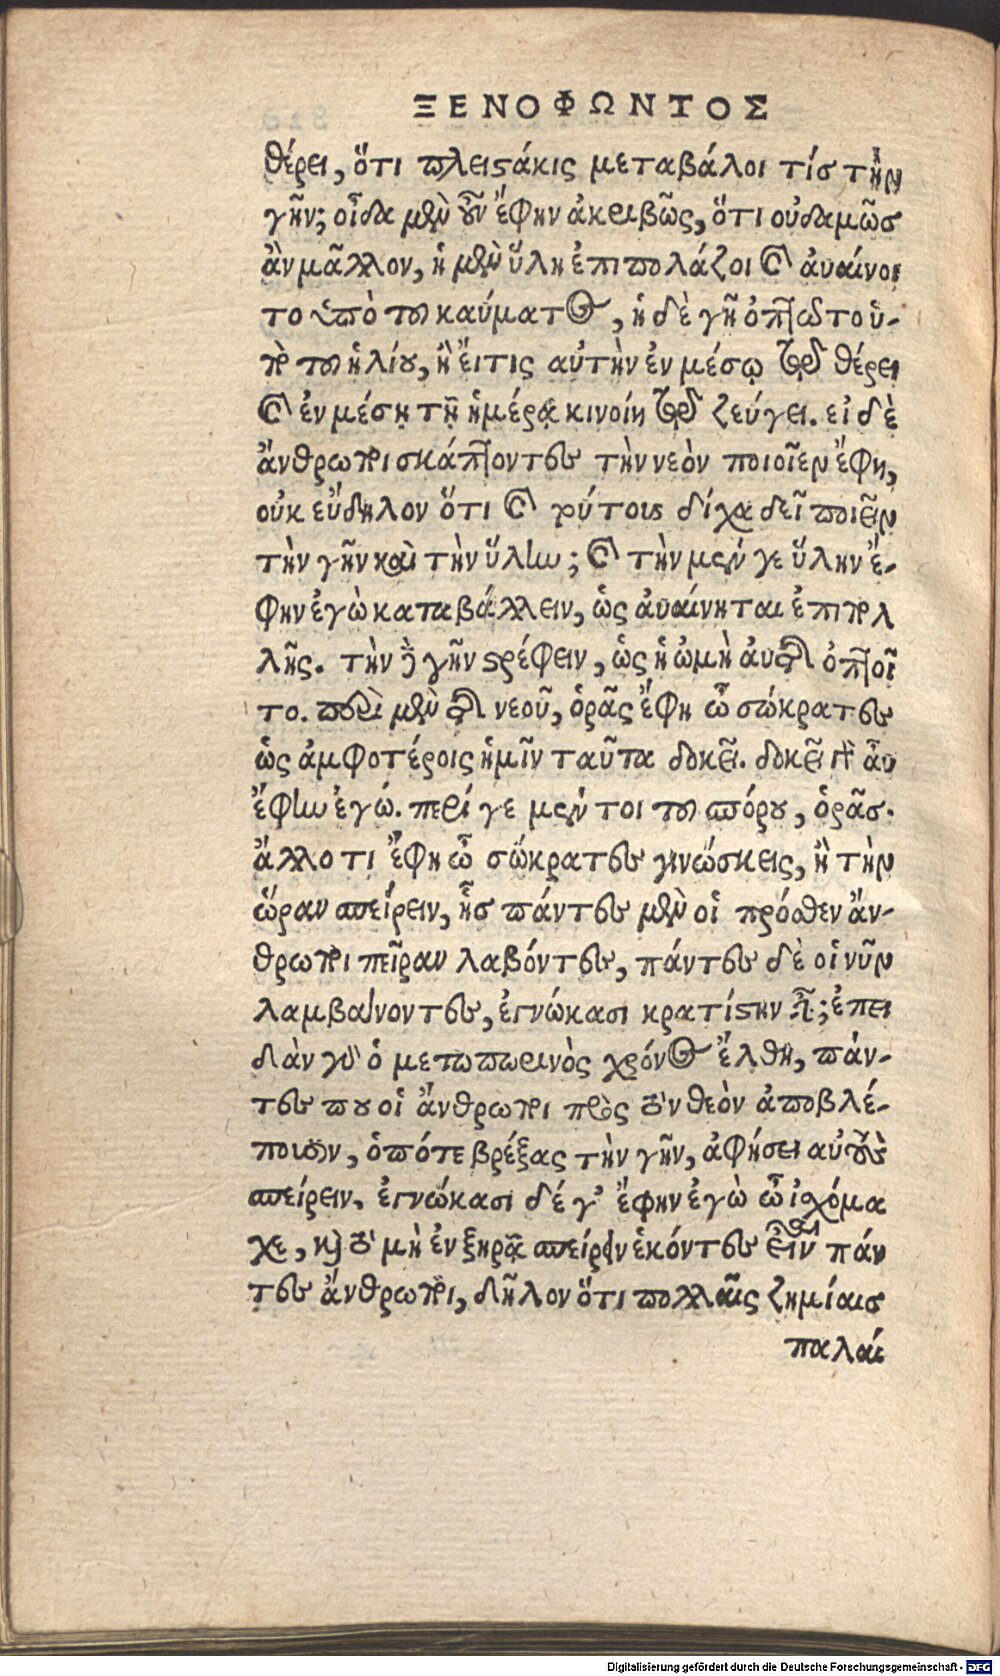 ΞΕΝΟΦΩΝΤΟΣ
θέρει, ὅτι πλειστάκις μεταβάλοι τίσ τὴν
γῆν; οἶδα μὲν οὖν ἔφην ἀκριβῶς, ὅτι οὐδαμῶσ
ἂν μᾶλλον, ἡ μὲν ὕλη ἐπιπολάζοι καὶ ἀυαίνοι
το ὑπὸ τοῦ καύματος, ἡ δὲ γῆ ὀπτῷτο ὑ-
πὸ τοῦ ἡλίου, ἢ ἔιτις αὐτὴν ἐν μέσῳ τῷ θέρει
καὶ ἐν μέσῃ τῇ ἡμέρᾳ κινοίη τῷ ζεύγει. εἰ δὲ
ἄνθρωποι σκάπτοντες τὴν νεὸν ποιοῖεν ἔφη,
οὐκ εὔδηλον ὅτι καὶ τούτους δίχα δεῖ ποιεῖν
τὴν γῆν καὶ τὴν ὕλην; καὶ τὴν μέν γε ὕλην ἔ-
φην ἐγὼ καταβάλλειν, ὡς ἀυαίνηται ἐπιπολ
λῆς. τὴν δὲ γῆν στρέφειν, ὡς ἡ ὠμὴ ἀυτῆς ὀπτοῖ
το. περὶ μὲν τῆς νεοῦ, ὁρᾶς ἔφη ὦ σώκρατες
ὡς ἀμφοτέροις ἡμῖν ταῦτα δοκεῖ. δοκεῖ γὰρ ἂυ
ἔφην ἐγώ. περί γε μέντοι τοῦ σπόρου, ὁρᾶσ.
ἄλλο τι ἔφη ὦ σώκρατες γινώσκεις, ἢ τὴν
ὥραν σπείρειν, ἧσ πάντες μὲν οἱ πρόσθεν ἄν-
θρωποι πεῖραν λαβόντες, πάντες δὲ οἱ νῦν
λαμβάνοντες, ἐγνώκασι κρατίστην εἶναι; ἐπει
δὰν γὰρ ὁ μετωπωρινὸς χρόνος ἔλθῃ, πάν-
τες που οἱ ἄνθρωποι πρὸς τὸν θεὸν ἀποβλέ-
ποισιν, ὁπότε βρέξας τὴν γῆν, ἀφήσει αὐτοὺς
σπείρειν. ἐγνώκασι δέ γ' ἔφην ἐγὼ ὦ ἰσχόμα
χε, καὶ τὸ μὴ ἐν ξηρᾷ σπείρειν ἑκόντες εἶναι πάν
τες ἄνθρωποι, δῆλον ὅτι πολλαῖς ζημίαισ
παλαί